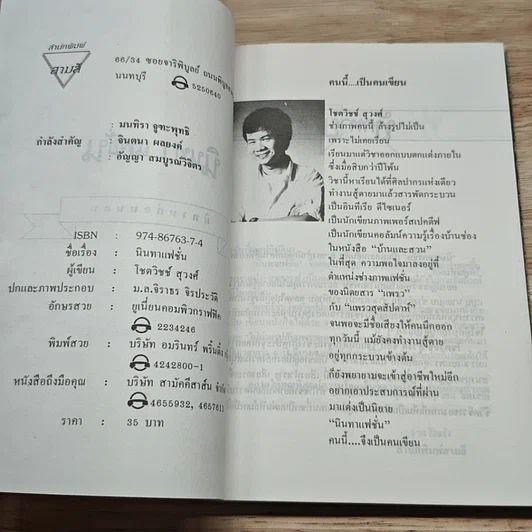 สำนักพิมพ์
สามสี
66/34 ซอยจารีพิบูลย์ ถนนพิบูล
นนทบุรี 5250640
กำลังสำคัญ
: มนทิรา จูฑะพุทธิ
: จินตนา ผลยงค์
: อัญญา สมบูรณ์วิจิตร
ISBN : 974-86763-7-4
ชื่อเรื่อง : นินทาแฟชั่น
ผู้เขียน : โชตวิชช์ สุวงศ์
ปกและภาพประกอบ : ม.ล.จิราธร จิรประวัติ
อักษรสวย : ยูเนี่ยนคอมพิวกราฟฟิค
2234246
พิมพ์สวย : บริษัท อมรินทร์ พริ้นติ้ง
4242800-1
หนังสือถึงมือคุณ : บริษัท สามัคคีสาส์น จำกัด
4655932, 4657611
ราคา : 35 บาท
คนนี้...เป็นคนเขียน
โชตวิชช์ สุวงศ์
ช่างภาพคนนี้ ล้างรูปไม่เป็น
เพราะไม่เคยเรียน
เรียนมาแต่วิชาออกแบบตกแต่งภายใน
ซึ่งเมื่อสิบกว่าปีโพ้น
วิชานี้หาเรียนได้ที่ศิลปากรแห่งเดียว
ทำงานสู้ตายมาแล้วสารพัดกระบวน
เป็นอินทีเรีย ดีไซเนอร์
เป็นนักเขียนภาพเพอร์สเปคตีฟ
เป็นนักเขียนคอลัมน์ความรู้เรื่องบ้านช่อง
ในหนังสือ "บ้านและสวน"
ในที่สุด ความพอใจมาลงอยู่ที่
ตำแหน่งช่างภาพแฟชั่น
ของนิตยสาร "แพรว"
กับ "แพรวสุดสัปดาห์"
จนพอจะมีชื่อเสียงให้คนนึกออก
ทุกวันนี้ แม้ยังคงทำงานสู้ตาย
อยู่ทุกกระบวนข้างต้น
ก็ยังพยายามจะเข้าสู่อาชีพใหม่อีก
อยากเอาประสบการณ์ที่ผ่าน
มาแต่งเป็นนิยาย
"นินทาแฟชั่น"
คนนี้....จึงเป็นคนเขียน